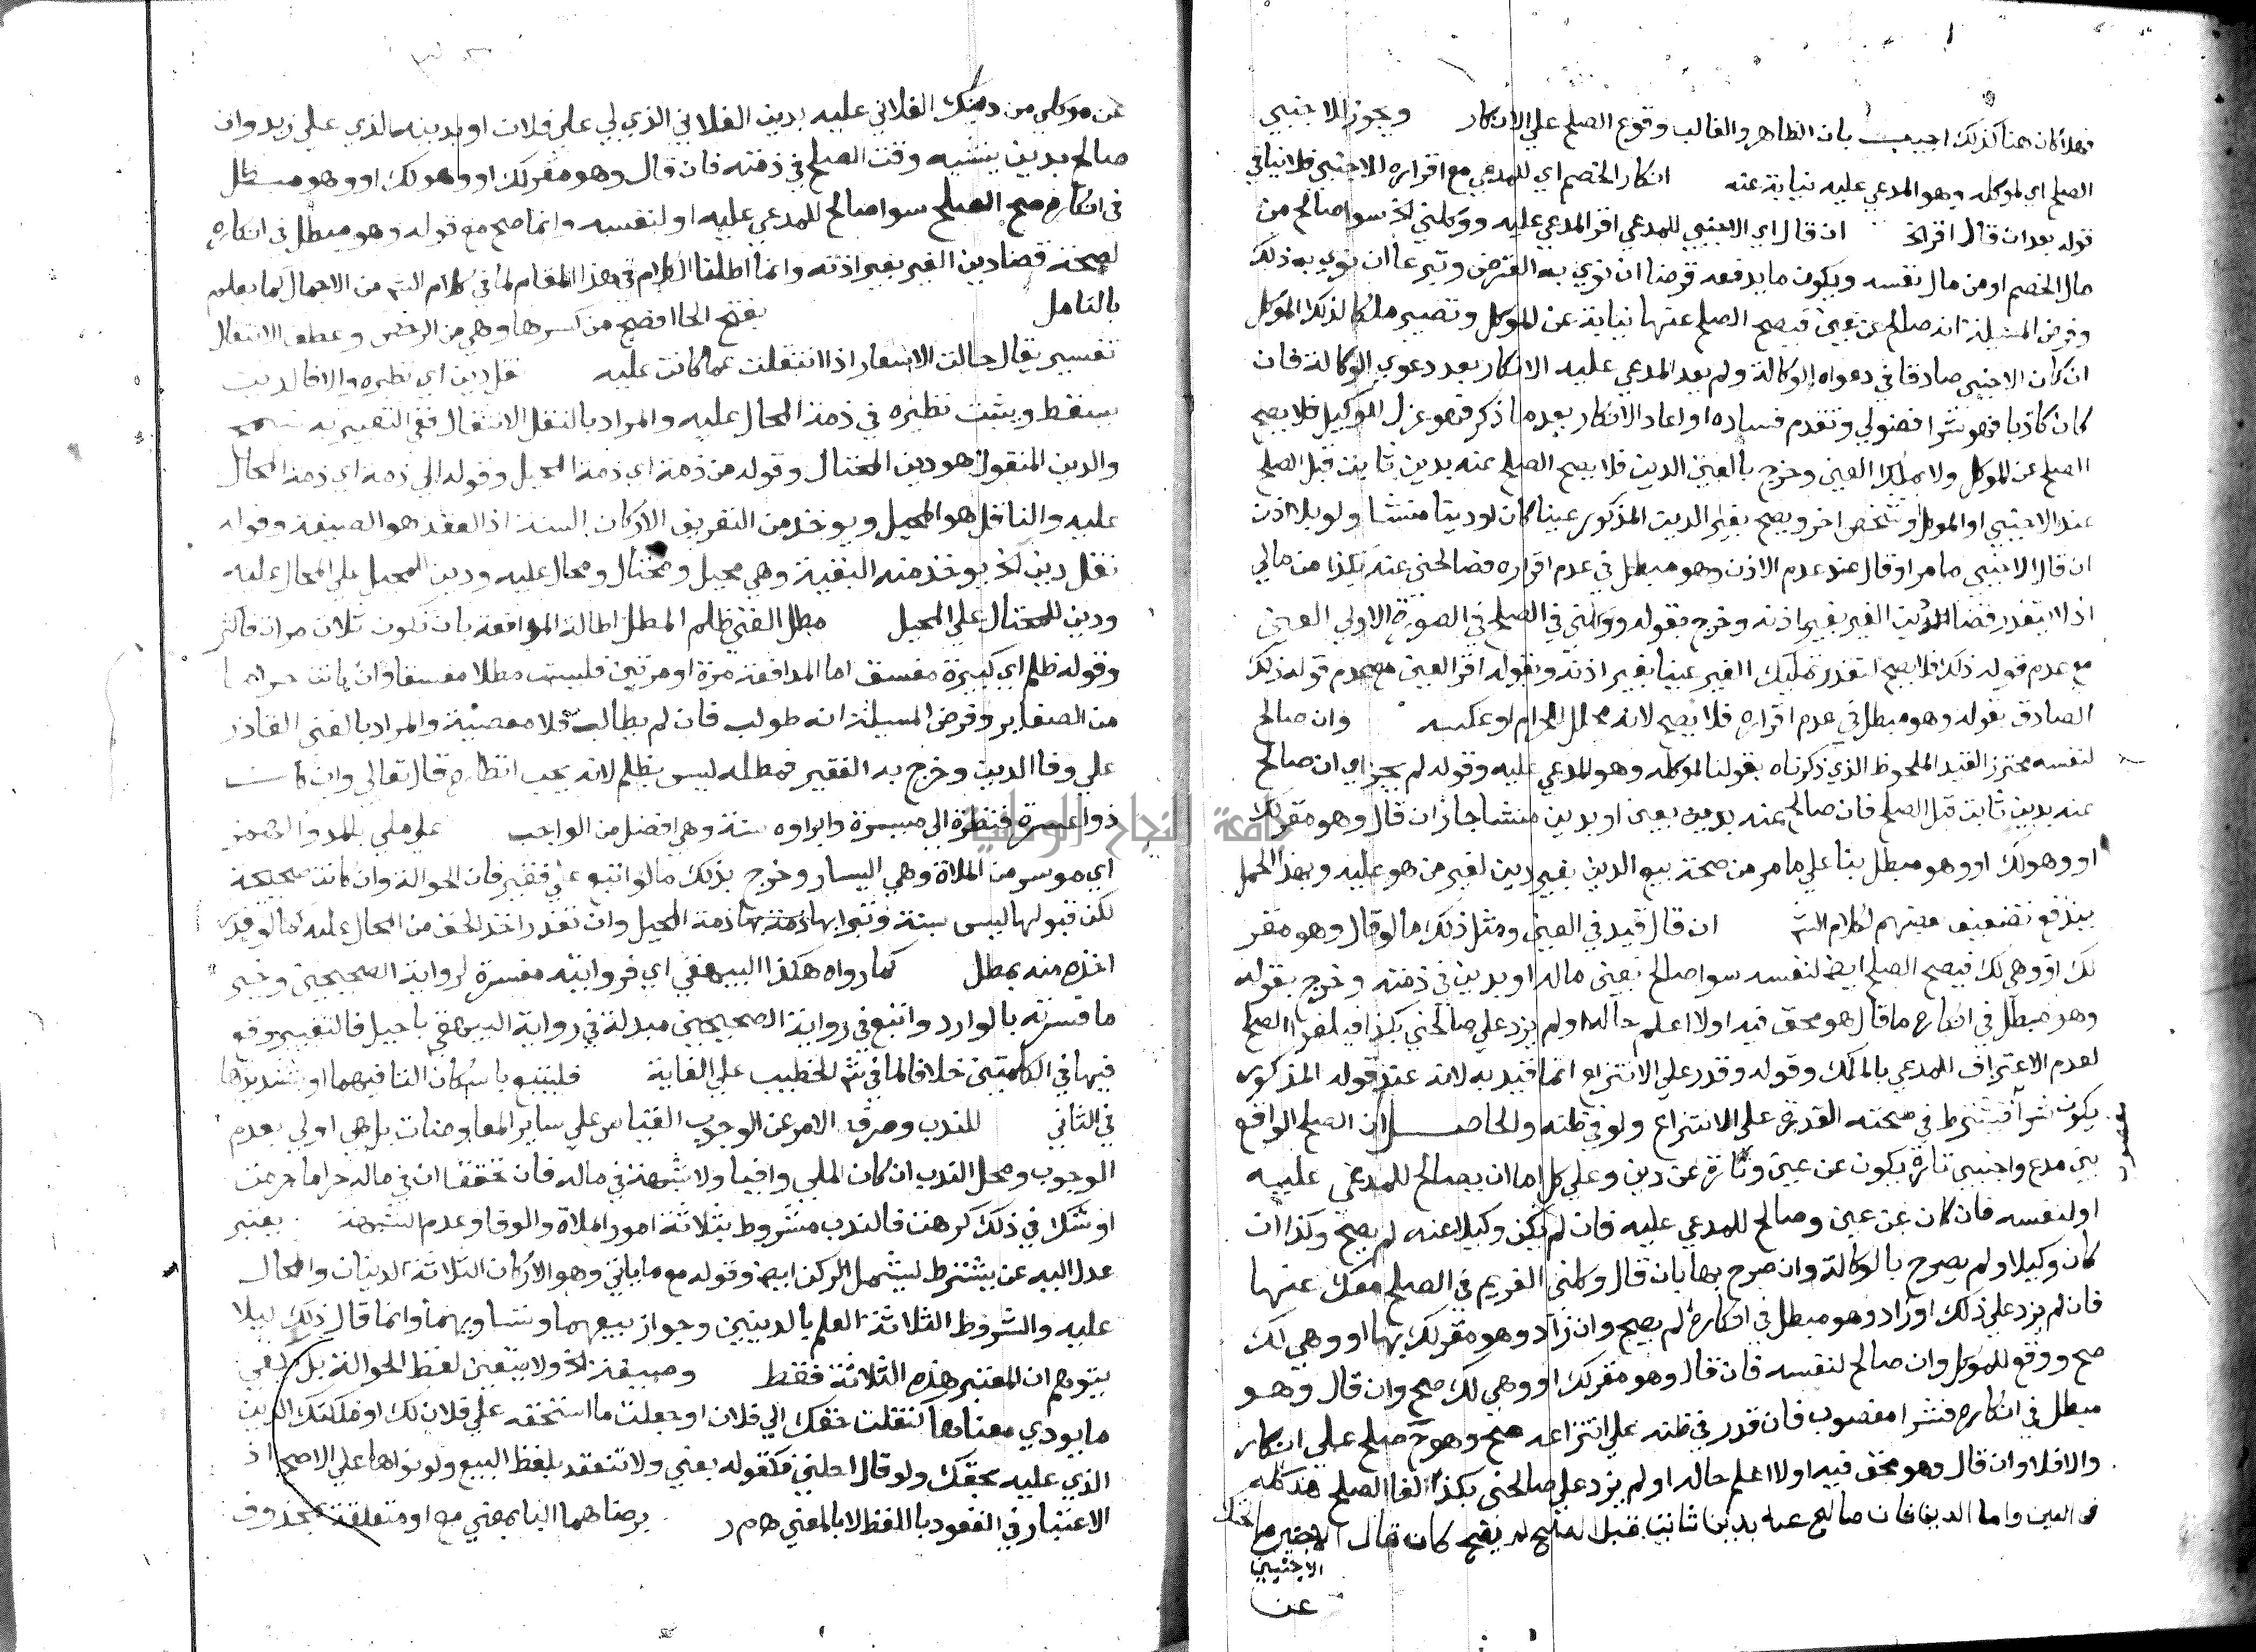 فهلا كان هنا كذلك اجيب بان الظاهر والغالب وقوع الصلح علي الانكار ويجوز للاجنبي
الصلح اي لموكله وهو المدعي عليه نيابة عنه انكار الخصم اي للمدعي مع اقراره للاجنبي فلا ينافي
قوله بعد ان قال اقر الخ ان قال اي الاجنبي للمدعي اقر المدعي عليه ووكلني الخ سوا صالح من
مال الخصم او من مال نفسه ويكون ما يدفعه قرضا ان نوي به القرض وتبرعا ان نوي به ذلك
وفرض المسئلة انه صالح عن عين فيصح الصلح عنها نيابة عن الموكل وتصير ملكا لذلك الموكل
ان كان الاجنبي صادقا في دعواه الوكالة ولم يعد المدعي عليه الانكار بعد دعوي الوكالة فان
كان كاذبا فهو شرا فضولي وتقدم فساده او اعاد الانكار بعد ما ذكر فهو عزل للوكيل فلا يصح
الصلح عن الموكل ولا يملك العين وخرج بالعين الدين فلا يصح الصلح عنه بدين ثابت قبل الصلح
عند الاجنبي او الموكل او شخص اخر ويصح بغير الدين المذكور عينا كان او دينا منشا ولو بلا اذن
ان قال الاجنبي ما مر او قال عند عدم الاذن وهو مبطل في عدم اقراره فصالحني عنه بكذا من مالي
اذ لا يتعذر قضا الدين الغير بغير اذنه وخرج بقوله ووكلني في الصلح في الصورة الاولي العين
مع عدم قوله ذلك فلا يصح لتعذر تمليك الغير عينا بغير اذنه وبقوله اقر العين مع عدم قوله ذلك
الصادق بقوله وهو مبطل في عدم اقراره فلا يصح لانه محلل للحرام او عكسه وان صالح
لنفسه محترز القيد الملحوظ الذي ذكرناه بقولنا لموكله وهو المدعي عليه وقوله لم يجز اي ان صالح
عنه بدين ثابت قبل الصلح فان صالح عنه بدين بعين او بدين منشا جاز ان قال وهو مقر لك
او وهو لك او وهو مبطل بنا علي ما مر من صحة بيع الدين بغير دين لغير من هو عليه وبهذا الحمل
يندفع تضعيف بعضهم لكلام الش ان قال قيد في العين ومثل ذلك ما لو قال وهو مقر
لك او وهي لك فيصح الصلح ايضا لنفسه سوا صالح بعين ماله او بدين في ذمته وخرج بقوله
وهو مبطل في انكاره ما قال هو محق فيه او لا اعلم حاله او لم يزد علي صالحني بكذا فيلغو الصلح
لعدم الاعتراف للمدعي بالملك وقوله وقدر علي الانتزاع انما قيد به لانه عند قوله المذكور
يكون شرا فيشترط في صحته القدرة علي الانتزاع ولو في ظنه والحاصل ان الصلح الواقع
بين مدع واجنبي تارة يكون عن عين وتارة عن دين وعلي كل اما ان يصالح للمدعي عليه
او لنفسه فان كان عن عين وصالح للمدعي عليه فان لم يكن وكيلا عنه لم يصح وكذا ان
كان وكيلا ولم يصرح بالوكالة وان صرح بها بان قال وكلني الغريم في الصلح معك عنها
فان لم يزد علي ذلك او زاد وهو مبطل في انكاره لم يصح وان زاد وهو مقر لك بها او وهي لك
صح ووقع للموكل وان صالح لنفسه فان قال وهو مقر لك او وهي لك صح وان قال وهو
مبطل في انكاره فشرا مغصوب فان قدر في ظنه علي انتزاعه صح وهو ح صلح علي انكار
والا فلا وان قال وهو محق فيه او لا اعلم حاله او لم يزد علي صالحني بكذا لغا الصلح هذا كله
في العين واما الدين فان صالح عنه بدين ثابت قبل لم يصح كان قال الاجنبي
الاجنبي
عن
عن موكلي من دينك الفلاني عليه بدين الفلاني الذي لي علي فلان او بدينه الذي علي زيد وان
صالح بدين ينشيه وقت الصلح في ذمته فان قال وهو مقر لك او وهو لك او وهو مبطل
في انكاره صح الصلح سوا صالح للمدعي عليه او لنفسه وانما صح مع قوله وهو مبطل في انكاره
لصحة قضا دين الغير بغير اذنه وانما اطلنا الكلام في هذا المقام لما في كلام الش من الاجمال كما يعلم
بالتامل بفتح الحا افصح من كسرها وهي من الرخص وعطف الانتقال
تفسير يقال حالت الاسعار اذا انتقلت عما كانت عليه نقل دين اي نظيره والا فالدين
يسقط ويثبت نظيره في ذمة المحال عليه والمراد بالنقل الانتقال ففي التعبير به تسمح
والدين المنقول هو دين المحتال وقوله من ذمة اي ذمة المحيل وقوله الي ذمة اي ذمة المحال
عليه والناقل هو المحيل ويوخذ من التعريف الاركان الستة اذ العقد هو الصيغة وقوله
نقل دين الخ يوخذ منه البقية وهي محيل ومحتال ومحال عليه ودين للمحيل علي المحال عليه
ودين للمحتال علي المحيل مطل الغني ظلم المطل اطالة المدافعة بان تكون ثلاث مرات فاكثر
وقوله ظلم اي كبيرة مفسق اما المدافعة مرة او مرتين فليست مطلا مفسقا وان كانت حراما
من الصغاير وفرض المسيلة انه طولب فان لم يطالب فلا معصية والمراد بالغني القادر
علي وفا الدين وخرج به الفقير فمطله ليس بظلم لانه يجب انتظاره قال تعالي وان كان
ذو عسرة فنظرة الي ميسرة وابراوه سنة وهي افضل من الواجب علي ملي بالمد والهمز
اي موسر من الملاة وهي اليسار وخرج بذلك ما لو اتبع علي فقير فان الحوالة وان كانت صحيحة
لكن قبولها ليس سنة وتبرا بها ذمة المحيل وان تعذر اخذ الحق من المحال عليه كما لو
اخذه منه بمطل كما رواه هكذا البيهقي اي فروايته مفسرة لرواية الصحيحين وخير
ما فسرته بالوارد واتبع في رواية الصحيحين مبدلة في رواية البيهقي باحيل فالتفسير وقع
فيها في الكلمتين خلافا لما في ش الخطيب علي الغاية فليتبع باسكان التا فيهما او بتشديدها
في الثاني للندب وصرفه الامر عن الوجوب القياس علي ساير المعاوضات بل هي اولي بعدم
الوجوب ومحل الندب ان كان الملي وافيا ولا شبهة في ماله فان تحققنا ان في ماله حراما حرمت
او شك في ذلك كرهت فالندب مشروط بثلاثة امور الملاة والوفا وعدم الشبهة يعتبر
عدل اليه عن يشترط ليشمل الركن ايضا وقوله مع ما ياتي وهو الاركان الثلاثة الدينان والمحال
عليه والشروط الثلاثة العلم بالدينين وجواز بيعهما وتساويهما وانما قال ذلك ليلا
يتوهم ان المعتبر هذه الثلاثة فقط وصيغة الخ ولا يتعين لفظ الحوالة بل يكفي
ما يودي معناها كنقلت حقك الي فلان او جعلت ما استحقه علي فلان لك او ملكتك الدين
الذي عليه بحقك ولو قال احلني فكقوله بعني ولا تنعقد بلفظ البيع ولو نواها علي الاصح اذ
الاعتبار في العقود باللفظ لا بالمعني هـ م ر برضاهما البا بمعني مع او متعلقة بمحذوف
جامعة النجاح الوطنية